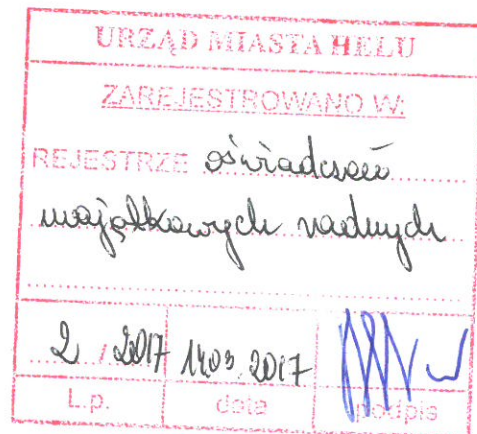 URZĄD MIASTA HELU
ZAREJESTROWANO W:
REJESTRZE oświadczeń
majątkowych radnych
2 / 2017 14.03.2017
L.p. data podpis